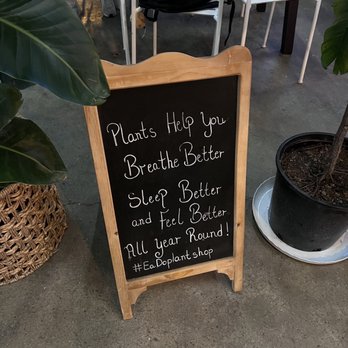 Plants Help You
Breathe Better
Sleep Better
and Feel Better
All Year Round!
#EaDoplantshop